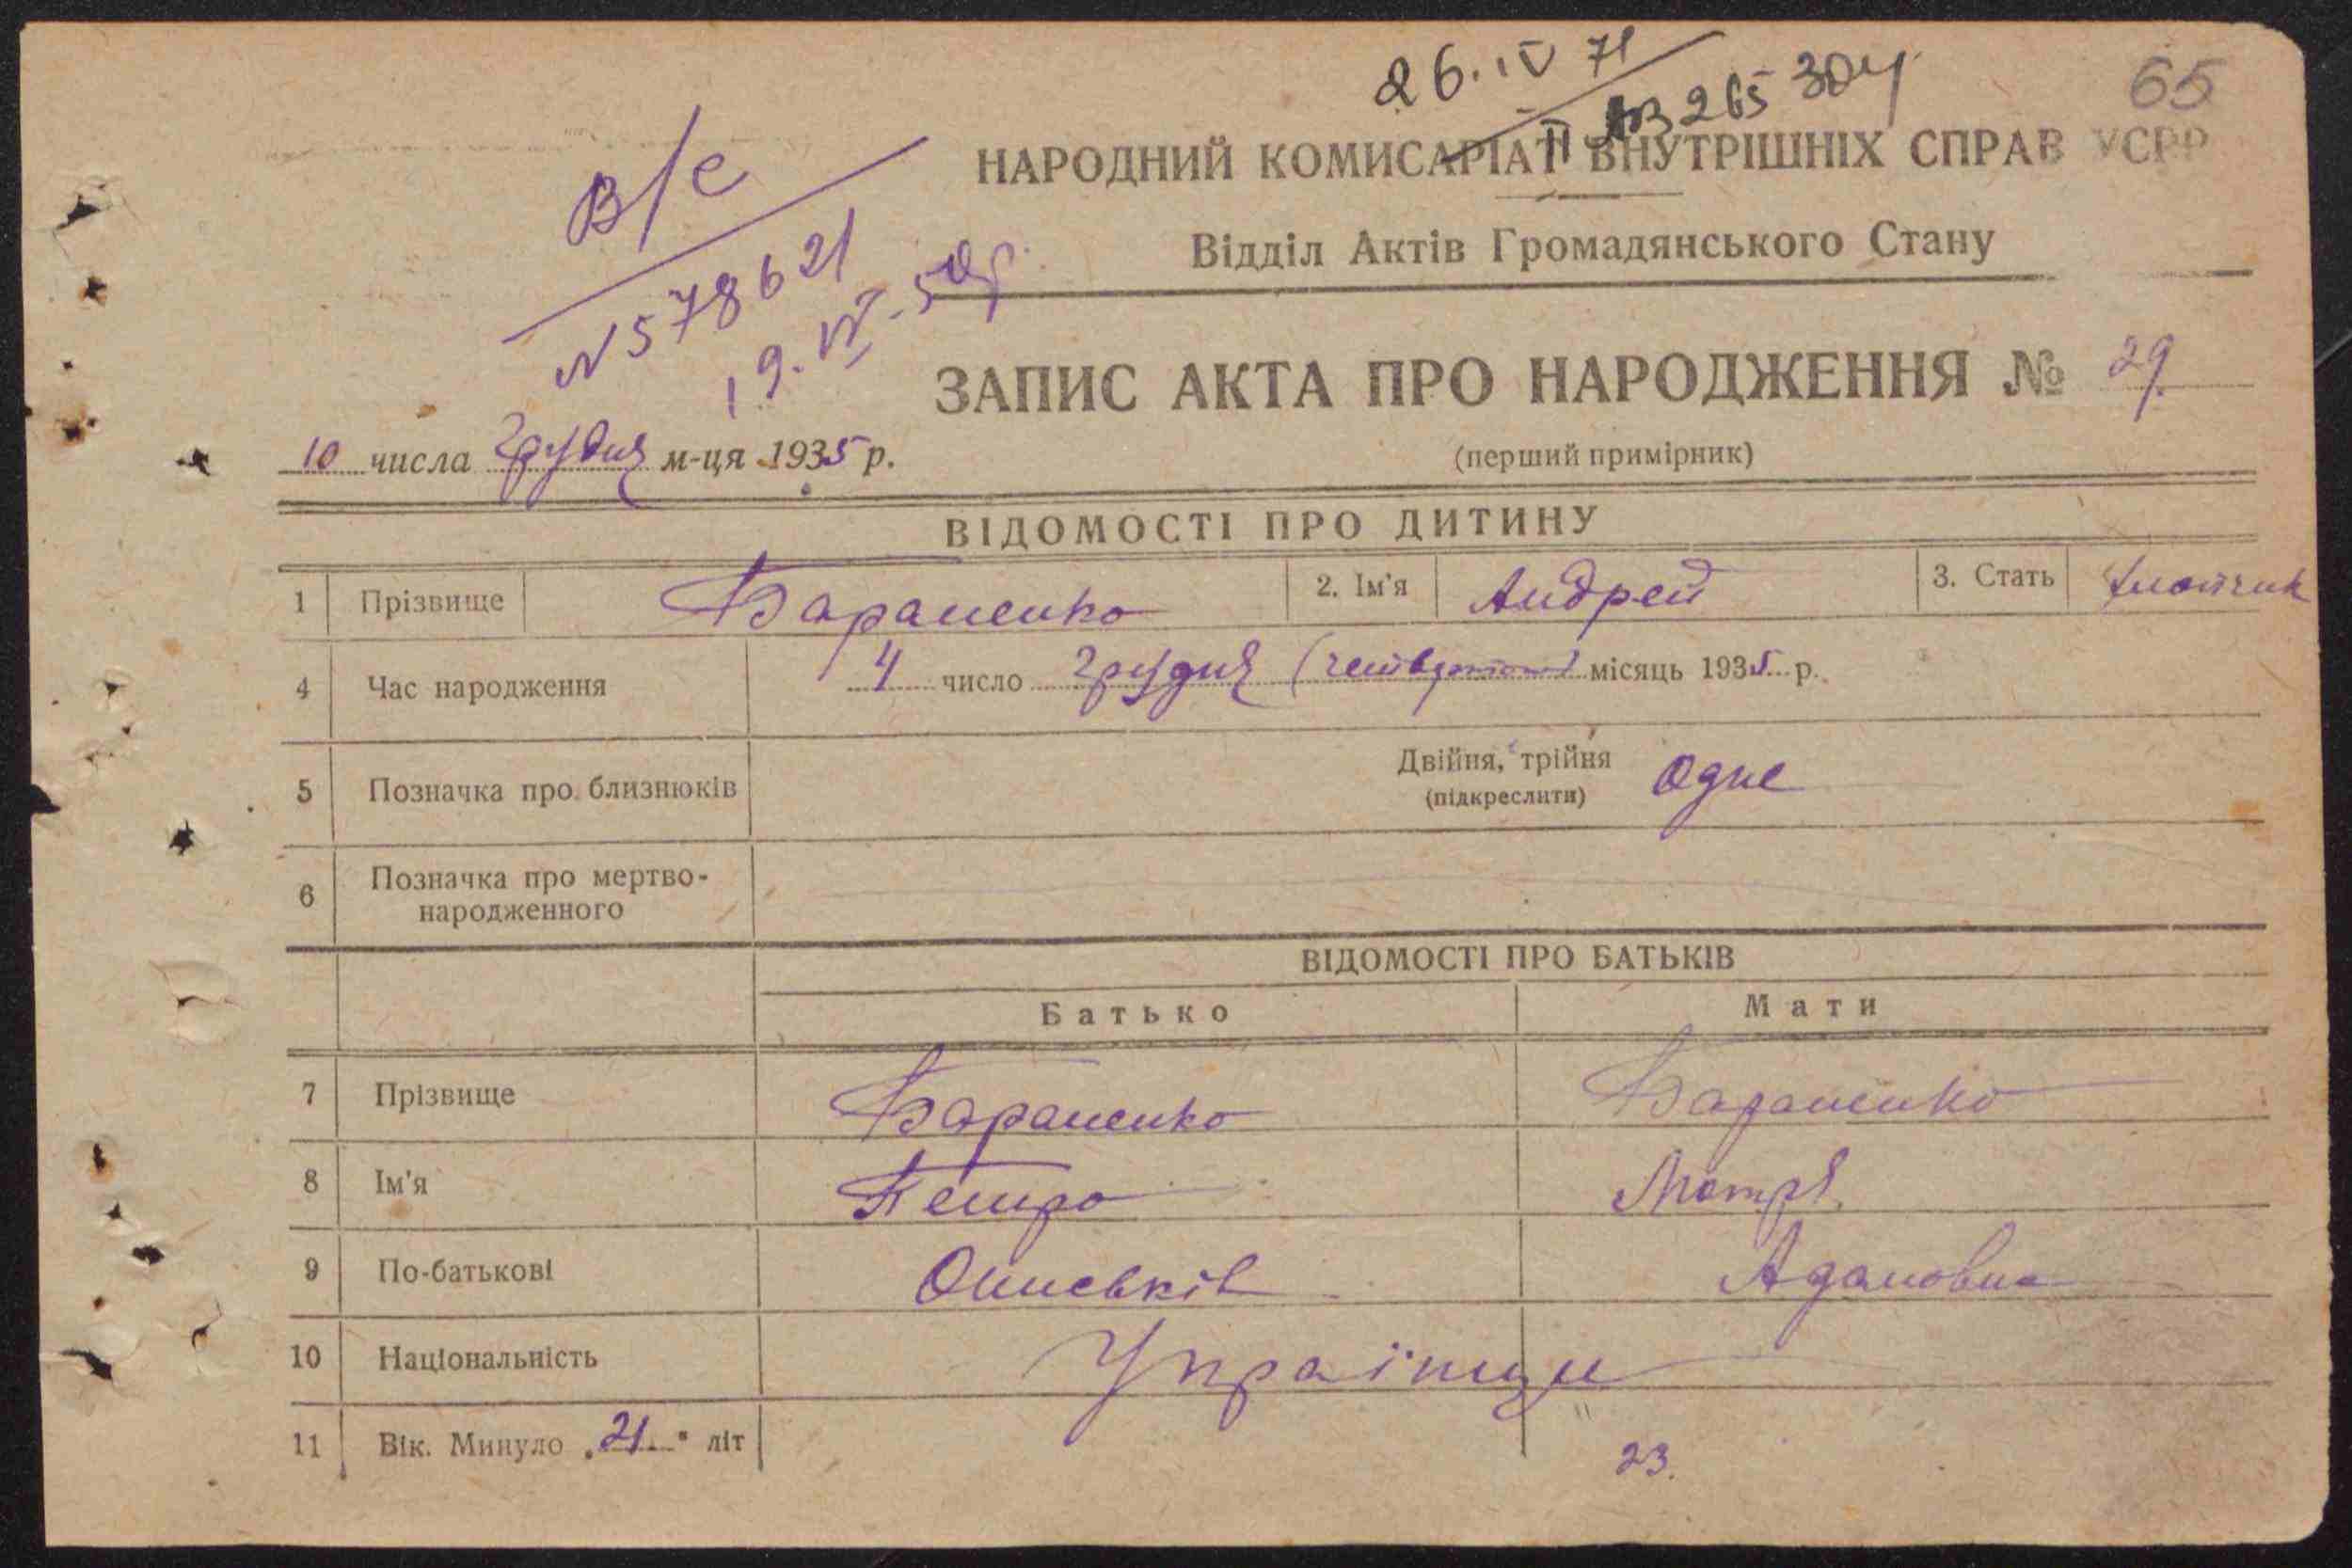 26.IV 71
65
II АЗ 265304
НАРОДНИЙ КОМИСАРІАТ ВНУТРІШНІХ СПРАВ УСРР
В/с
Відділ Актів Громадянського Стану
N578621
19. VI-50р.
ЗАПИС АКТА ПРО НАРОДЖЕННЯ № 29.
10 числа Грудня м-ця 1935 р.
(перший примірник)
ВІДОМОСТІ ПРО ДИТИНУ
1 Прізвище Бараненко 2. Ім'я Андрей 3. Стать Хлопчик
4 Час народження 4 число Грудня (четвертого) місяць 1935 р.
5 Позначка про близнюків Двійня, трійня Одне
(підкреслити)
6 Позначка про мертво-
народженного
ВІДОМОСТІ ПРО БАТЬКІВ
Батько Мати
7 Прізвище Бараненко Бараненко
8 Ім'я Петро Мотря
9 По-батькові Адамовна
10 Національність Українци
11 Вік. Минуло „21." літ 23.